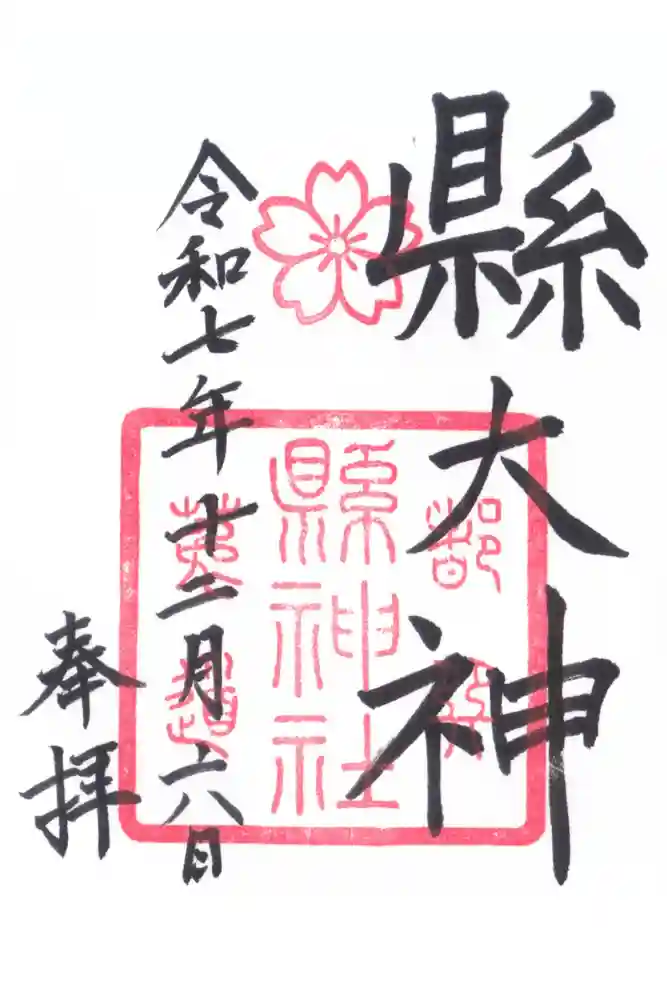 縣大神
縣神社
令和七年十二月六日
奉拝